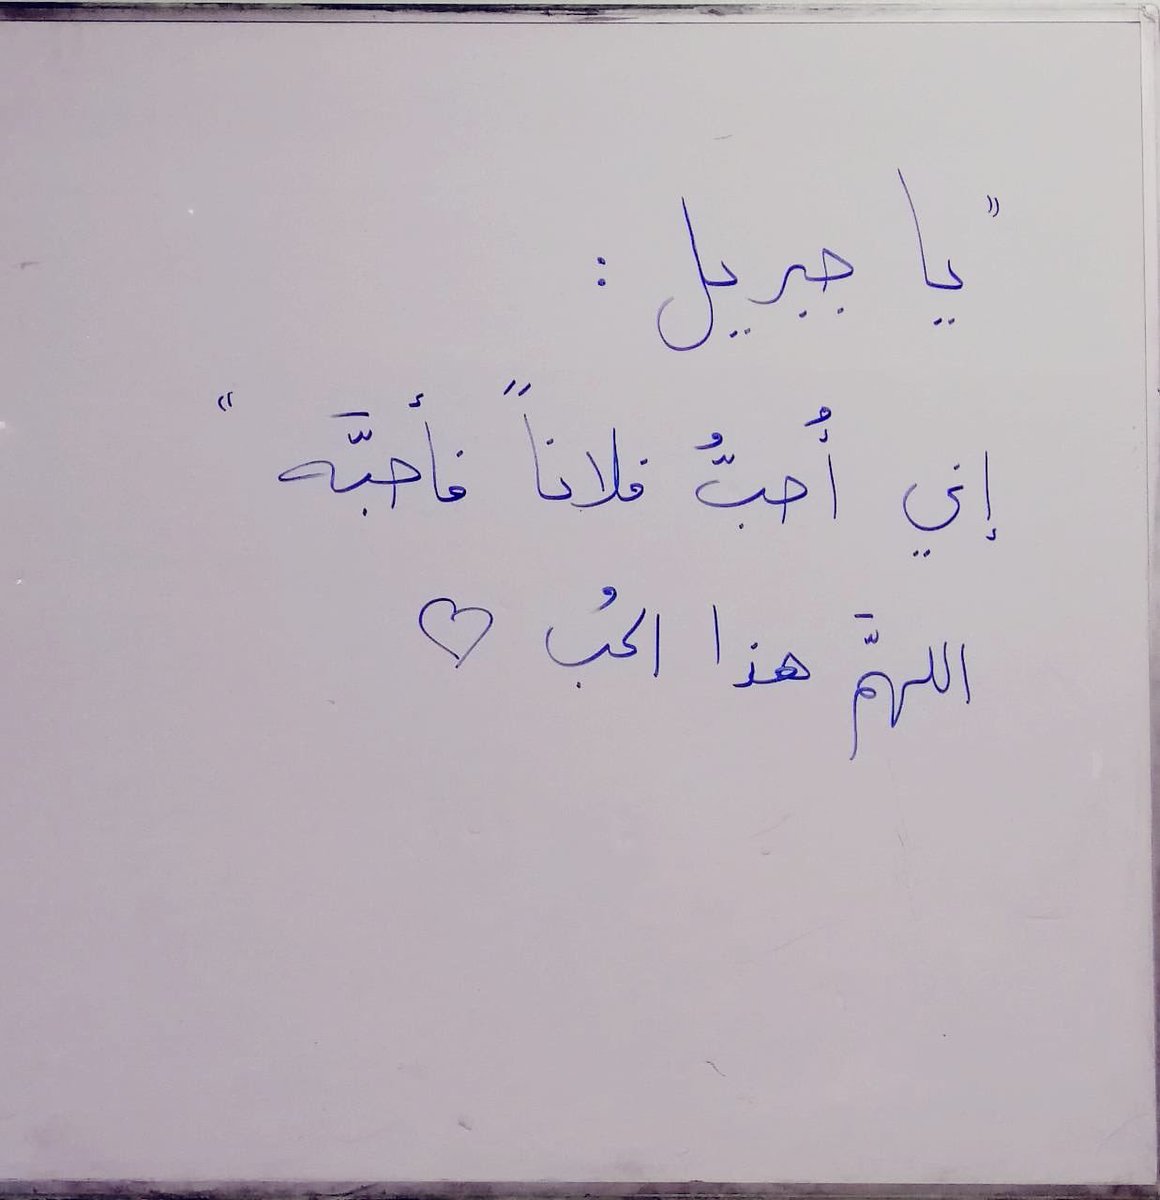 " يا جبريل :
إني أُحبُّ فلاناً فأحبَّه "
اللهمَّ هذا الحُب ♡